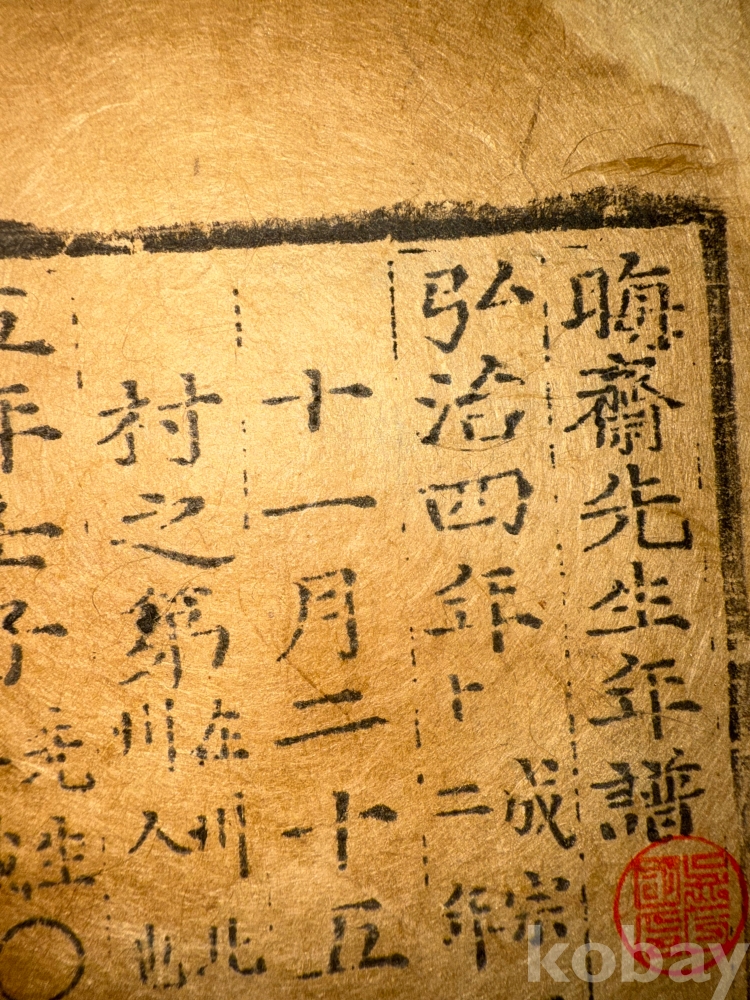 晦齋先生年譜
弘治四年成宗
十二年
十一月二十五
村之第在州北
州人
五年壬子先生
○
kobay